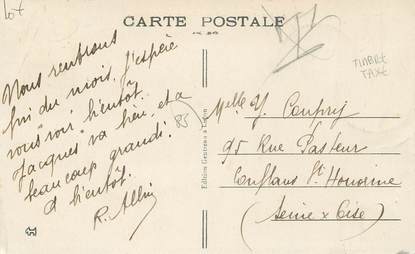 lot
CARTE POSTALE
TIMBRE
TAXE
Nous rentrons
fin du mois. J'espère
vous voir bientôt.
Jacques va bien et a
beaucoup grandi.
A bientôt.
R.
83
Melle Y.
95 Rue Pasteur
Conflans Ste Honorine
(Seine x Oise)